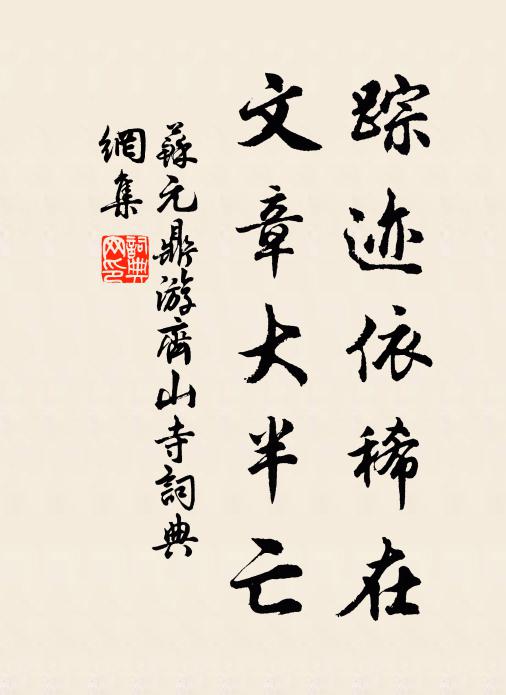 踪迹依稀在
文章大半亡
蘇元鼎游齊山寺詞典
網集
詞典
网印